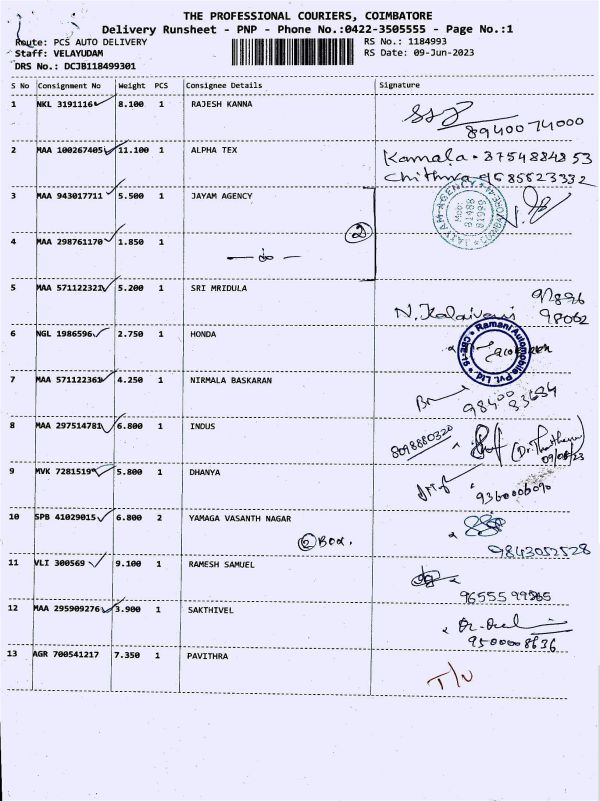 THE PROFESSIONAL COURIERS, COIMBATORE
Delivery Runsheet - PNP - Phone No.:0422-3505555 - Page No.:1
Route: PCS AUTO DELIVERY RS No.: 1184993
Staff: VELAYUDAM RS Date: 09-Jun-2023
DRS No.: DCJB118499301
S No Consignment No Weight PCS Consignee Details Signature
1 NKL 3191116 8.100 1 RAJESH KANNA
8940074000
2 MAA 100267405 11.100 1 ALPHA TEX Kamala. 8754884853
Chithra 9685623332
3 MAA 943017711 5.500 1 JAYAM AGENCY
2
4 MAA 298761170 1.850 1
— do —
5 MAA 571122321 5.200 1 SRI MRIDULA
N. Kalaivani 98062
6 NGL 1986596 2.750 1 HONDA
Ramani Automobile Pvt. Ltd. * CBE-91 *
7 MAA 571122363 4.250 1 NIRMALA BASKARAN
98400 83684
8 MAA 297514781 6.800 1 INDUS
8098880320
09/06/23
9 MVK 7281519 5.800 1 DHANYA
9360006090
10 SPB 41029015 6.800 2 YAMAGA VASANTH NAGAR
2 Box.
9843052528
11 VLI 300569 9.100 1 RAMESH SAMUEL
9655599565
12 MAA 295909276 3.900 1 SAKTHIVEL
9500008636
13 AGR 700541217 7.350 1 PAVITHRA
T/U